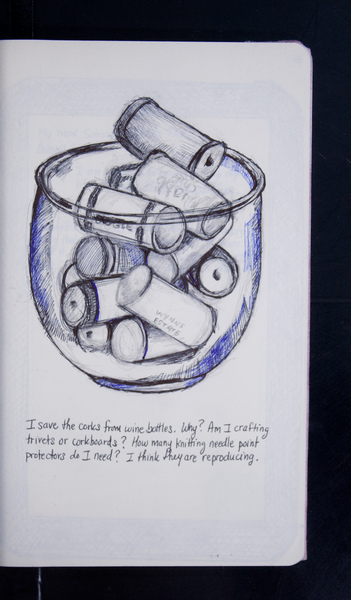 WYANE
ESTATE
I save the corks from wine bottles. Why? Am I crafting
trivets or corkboards? How many knitting needle point
protectors do I need? I think they are reproducing.